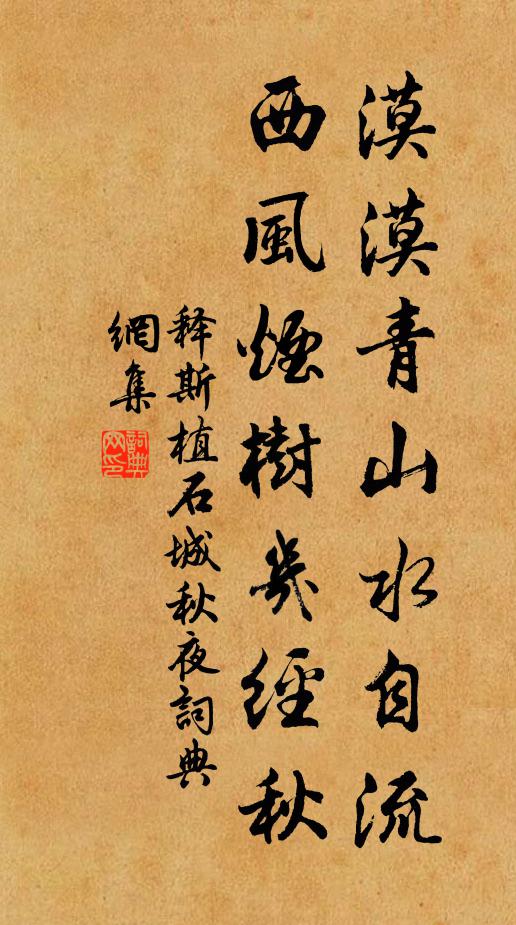 漠漠青山水自流
西風煙樹幾經秋
释斯植石城秋夜詞典
網集
詞典網印